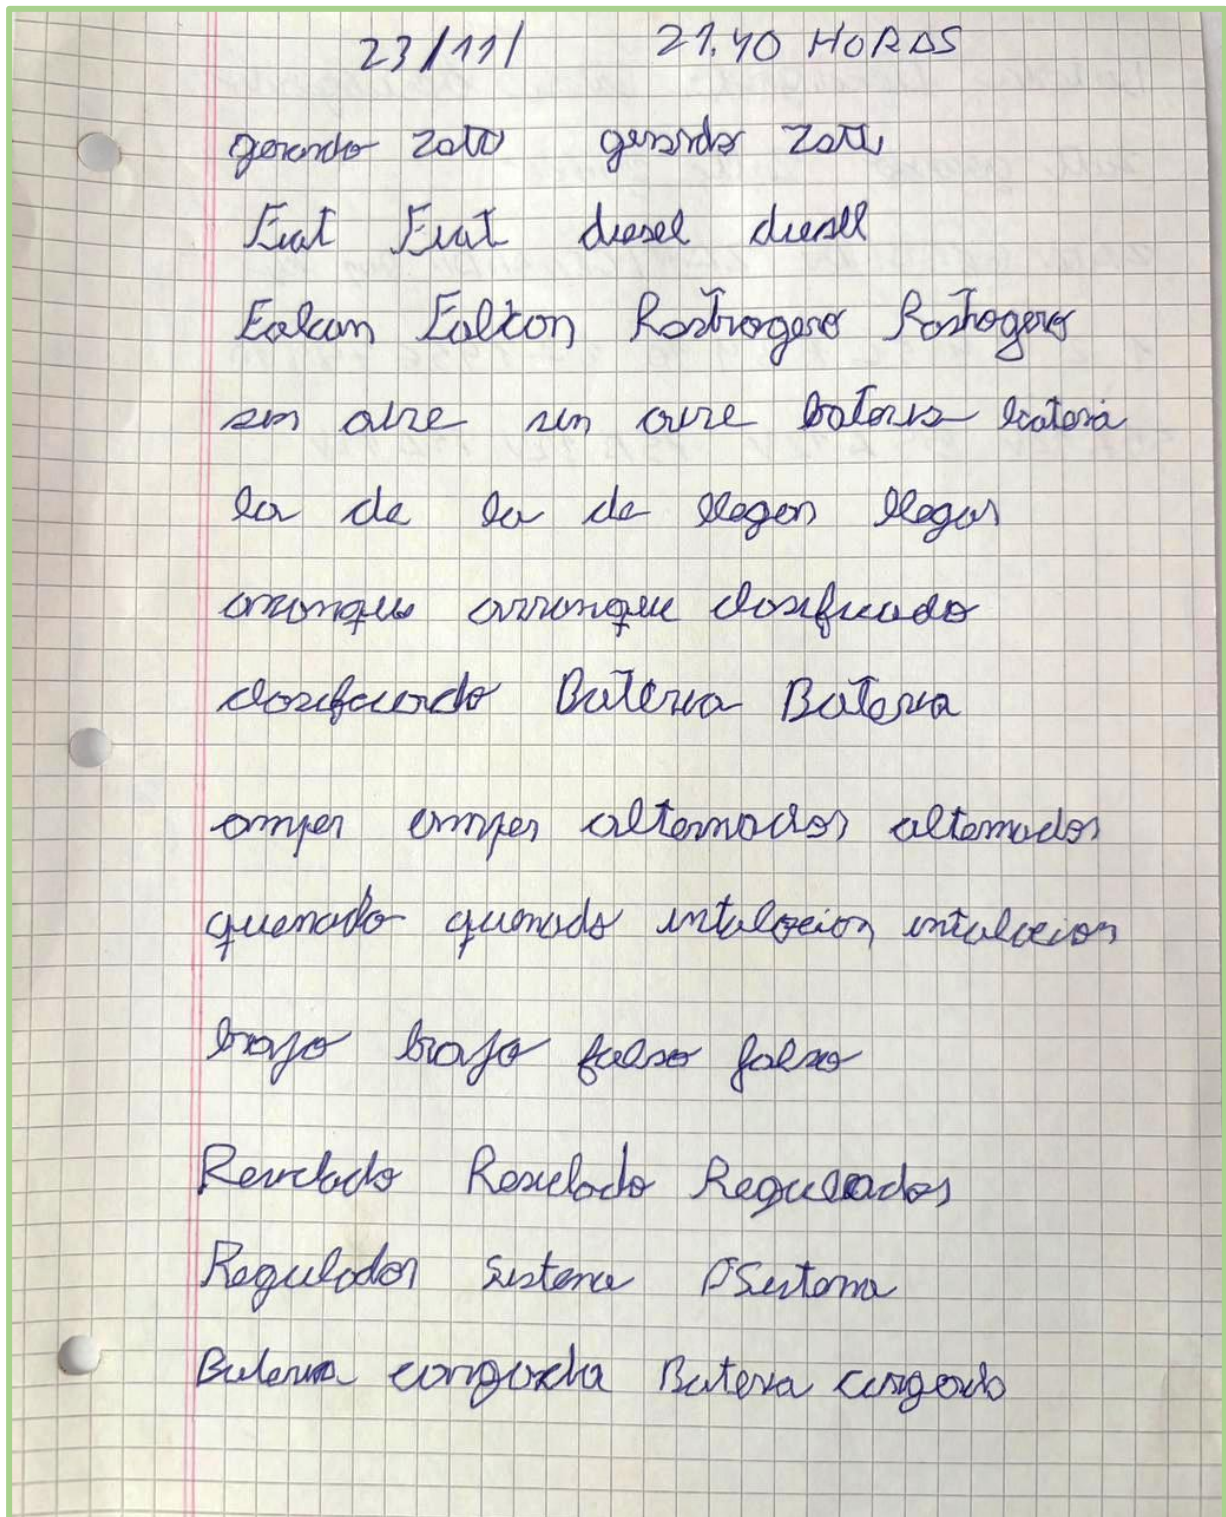 23/11/ 21.40 HORAS
gerardo zatti gerardo Zatti
Fiat Fiat diesel diesell
Falcon Falcon Rastrogero Rastrogero
sin aire sin aire bateria bateria
la de la de llegar llegar
arranque arranque dosificado
dosificado Bateria Bateria
amper amper alternador alternador
quemado quemado intalacion intalacion
bajo bajo falso falso
Revelado Revelado Regulador
Regulador Sistema Sistema
Bateria cargada Bateria cargado